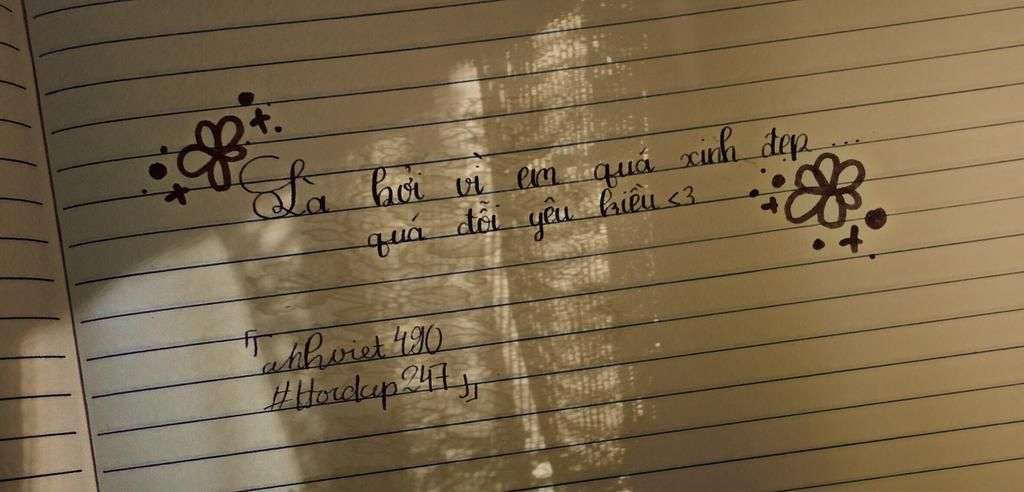 Là bởi vì em quá xinh đẹp ...
quá đỗi yêu kiều <3
「anhviet490
#Hoidap247」